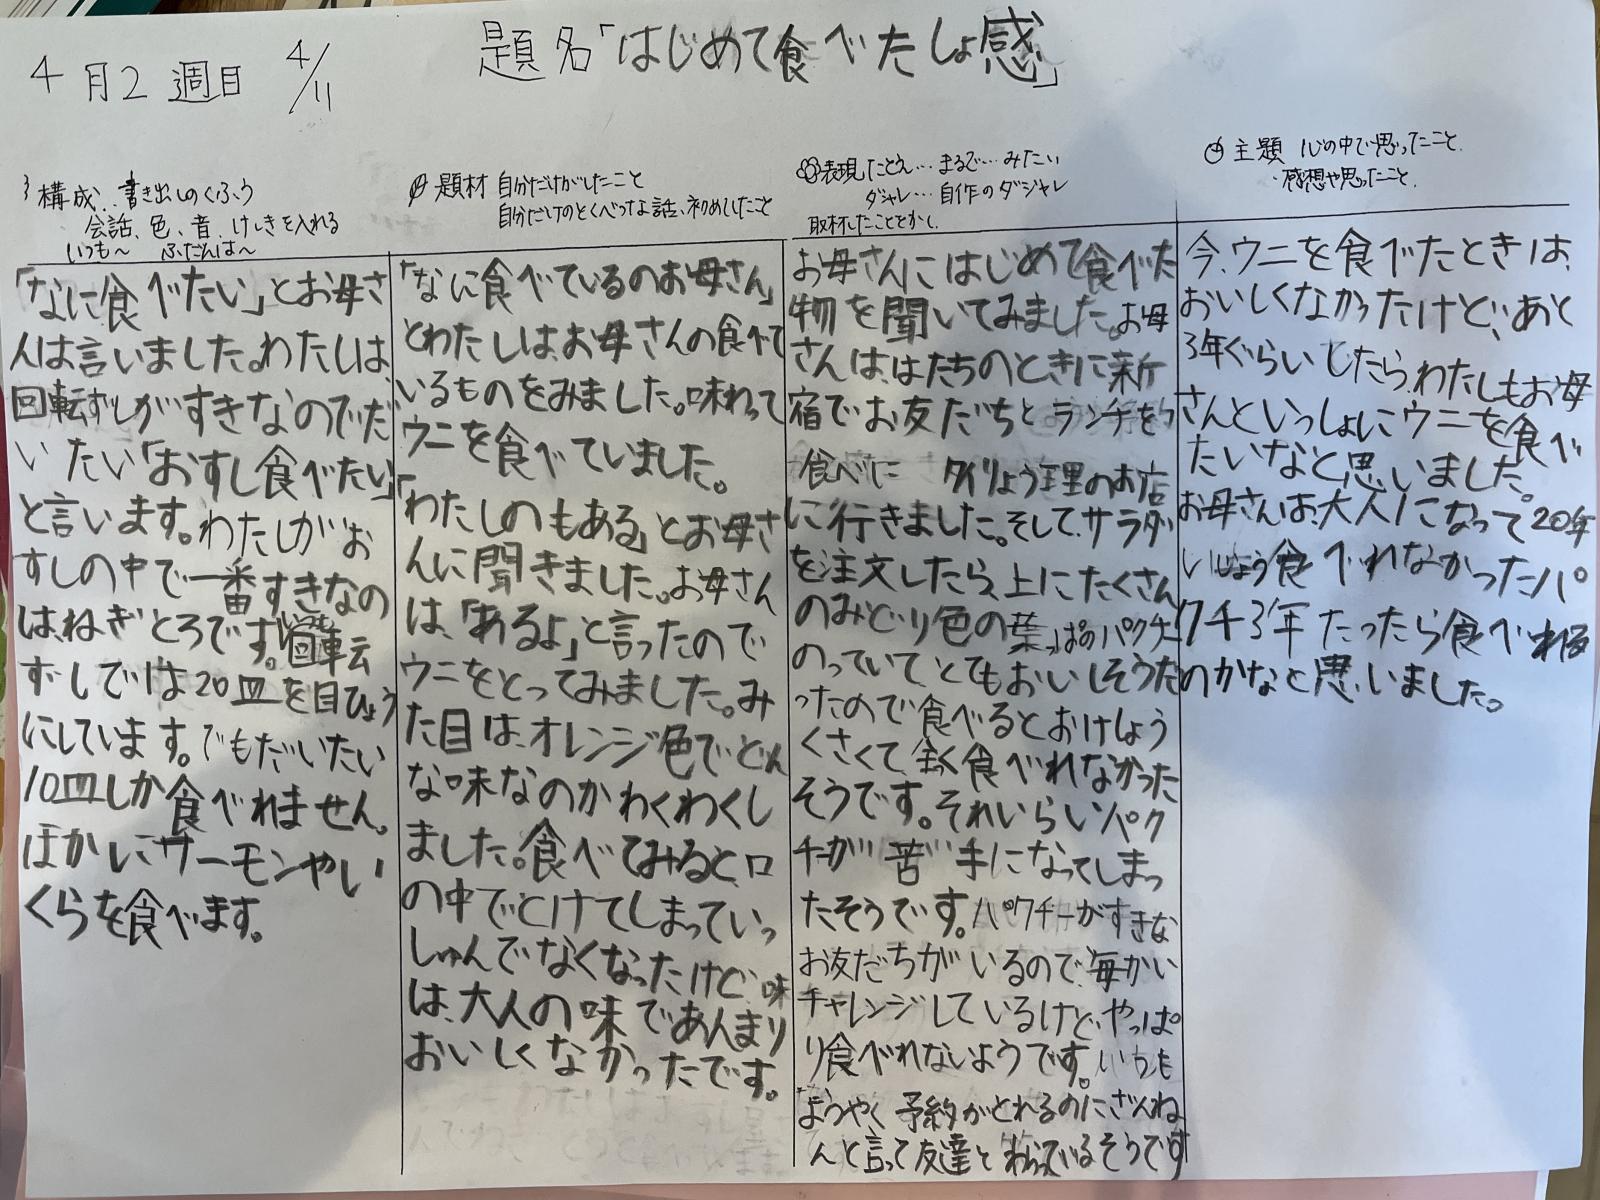 4月2週目 4/11
題名「はじめて食べたしょ感」
構成‥書き出しのくふう
会話、色、音、けしきを入れる
いつも〜 ふだんは〜
「なに食べたい」とお母さ
んは言いました。わたしは、
回転ずしがすきなのでだ
いたい「おすし食べたい」
と言います。わたしがお
すしの中で一番すきなの
は、ねぎとろです。回転
ずしでは20皿を目ひょう
にしています。でもだいたい
10皿しか食べれません。
ほかにサーモンやい
くらを食べます。
題材 自分だけがしたこと
自分だけのとくべつな話、初めてしたこと
「なに食べているのお母さん」
とわたしは、お母さんの食べて
いるものをみました。味わって
ウニを食べていました。
「わたしのもある」とお母さ
んに聞きました。お母さん
は、「あるよ」と言ったので
ウニをとってみました。み
た目は、オレンジ色でどん
な味なのかわくわくし
ました。食べてみると、口
の中でとけてしまっていっ
しゅんでなくなったけど、味
は、大人の味であんまり
おいしくなかったです。
表現 たとえ…まるで…みたい
ダジャレ…自作のダジャレ
取材したこととかし
お母さんにはじめて食べた
物を聞いてみました。お母
さんは、はたちのときに新
宿でお友だちとランチを
食べに タイりょう理のお店
に行きました。そして、サラダ
を注文したら、上にたくさん
のみどり色の葉っぱのパクチー
のっていて、とてもおいしそうだ
ったので食べるとおけしょう
くさくて、全く食べれなかった
そうです。それいらいパク
チーが苦手になってしまっ
たそうです。パクチーがすきな
お友だちがいるので、毎かい
チャレンジしているけど、やっぱ
り食べれないようです。いつも
ようやく予約がとれるのにざんね
んと言って友達とわらっているそうです
主題 心の中で思ったこと、
感想や思ったこと、
今、ウニを食べたときは、
おいしくなかったけど、あと
3年ぐらいしたら、わたしもお母
さんといっしょにウニを食べ
たいなと思いました。
お母さんは、大人になって20年
いじょう食べれなかったパ
クチ3年たったら食べれる
のかなと思いました。